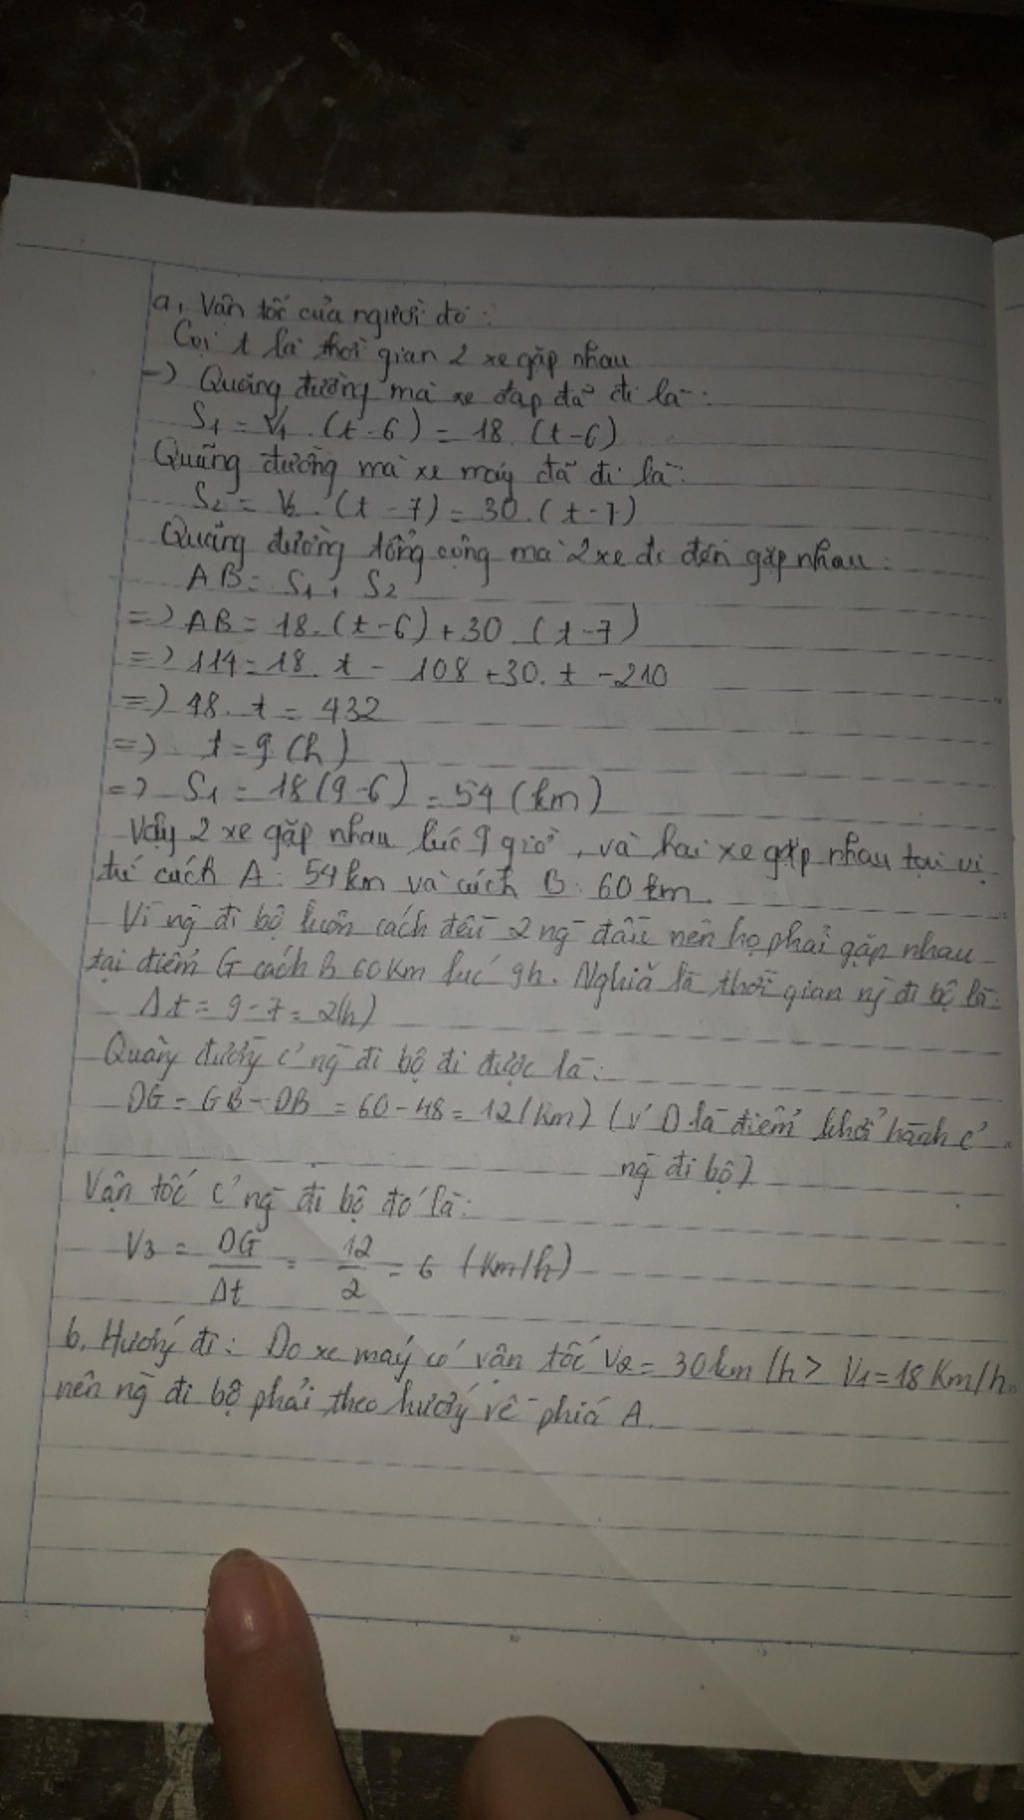 a, Vận tốc của người đó :
Gọi t là thời gian 2 xe gặp nhau
-) Quãng đường mà xe đạp đã đi là :
S1 = V1 . (t - 6) = 18 . (t - 6)
Quãng đường mà xe máy đã đi là :
S2 = V2 . (t - 7) = 30 . (t - 7)
Quãng đường tổng cộng mà 2 xe đi đến gặp nhau :
AB = S1 + S2
=> AB = 18 . (t - 6) + 30 . (t - 7)
=> 114 = 18 . t - 108 + 30 . t - 210
=> 48 . t = 432
=> t = 9 (h)
=> S1 = 18 (9 - 6) = 54 (km)
Vậy 2 xe gặp nhau lúc 9 giờ, và hai xe gặp nhau tại vị
trí cách A : 54 km và cách B : 60 km.
Vì ng̀ đi bộ luôn cách đều 2 ng̀ đầu nên họ phải gặp nhau
tại điểm G cách B 60 Km lúc 9h. Nghĩa là thời gian ng̀ đi bộ là :
Δt = 9 - 7 = 2(h)
Quãng đường c' ng̀ đi bộ đi được là :
DG = GB - DB = 60 - 48 = 12 (Km) (vì D là điểm khởi hành c'
ng̀ đi bộ)
Vận tốc c' ng̀ đi bộ đó là :
V3 = DG/Δt = 12/2 = 6 (Km/h)
b. Hướng đi : Do xe máy có vận tốc V2 = 30 km/h > V1 = 18 Km/h
nên ng̀ đi bộ phải theo hướng về phiá A.